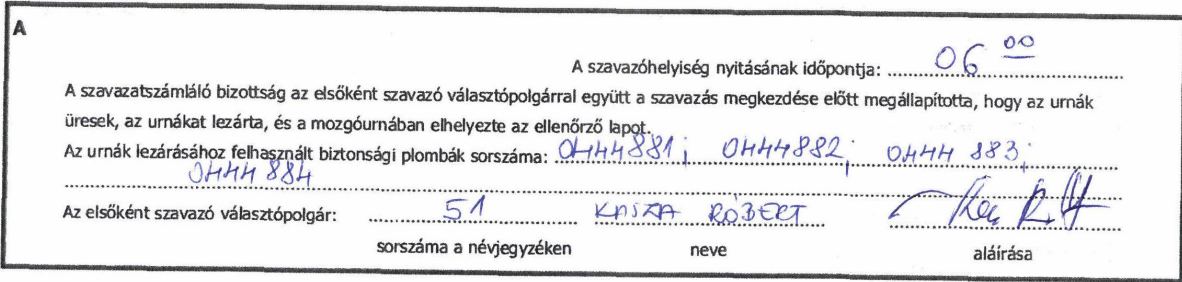 A
A szavazóhelyiség nyitásának időpontja: 06 00
A szavazatszámláló bizottság az elsőként szavazó választópolgárral együtt a szavazás megkezdése előtt megállapította, hogy az urnák
üresek, az urnákat lezárta, és a mozgóurnában elhelyezte az ellenőrző lapot.
Az urnák lezárásához felhasznált biztonsági plombák sorszáma: 0444881; 0444882; 0444 883;
0444 884
Az elsőként szavazó választópolgár: 51 KASZA RÓBERT
sorszáma a névjegyzéken neve aláírása